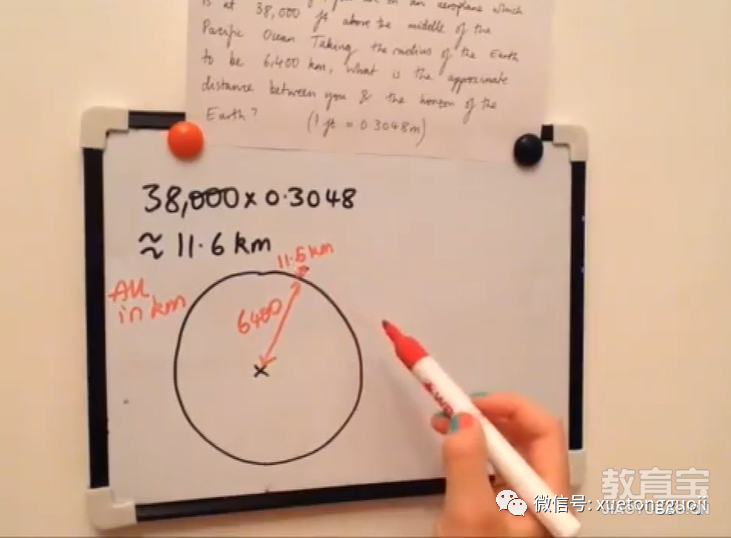 is at 38,000 ft above the middle of the
Pacific Ocean Taking the radius of the Earth
to be 6,400 km, what is the approximate
distance between you & the horizon of the
Earth?
(1 ft = 0.3048m)
38,000 x 0.3048
≈ 11.6 km
11.6 km
All
in km
6400
x
教育宝
微信号: xuetongguoji
JIAOYUBAO.CN